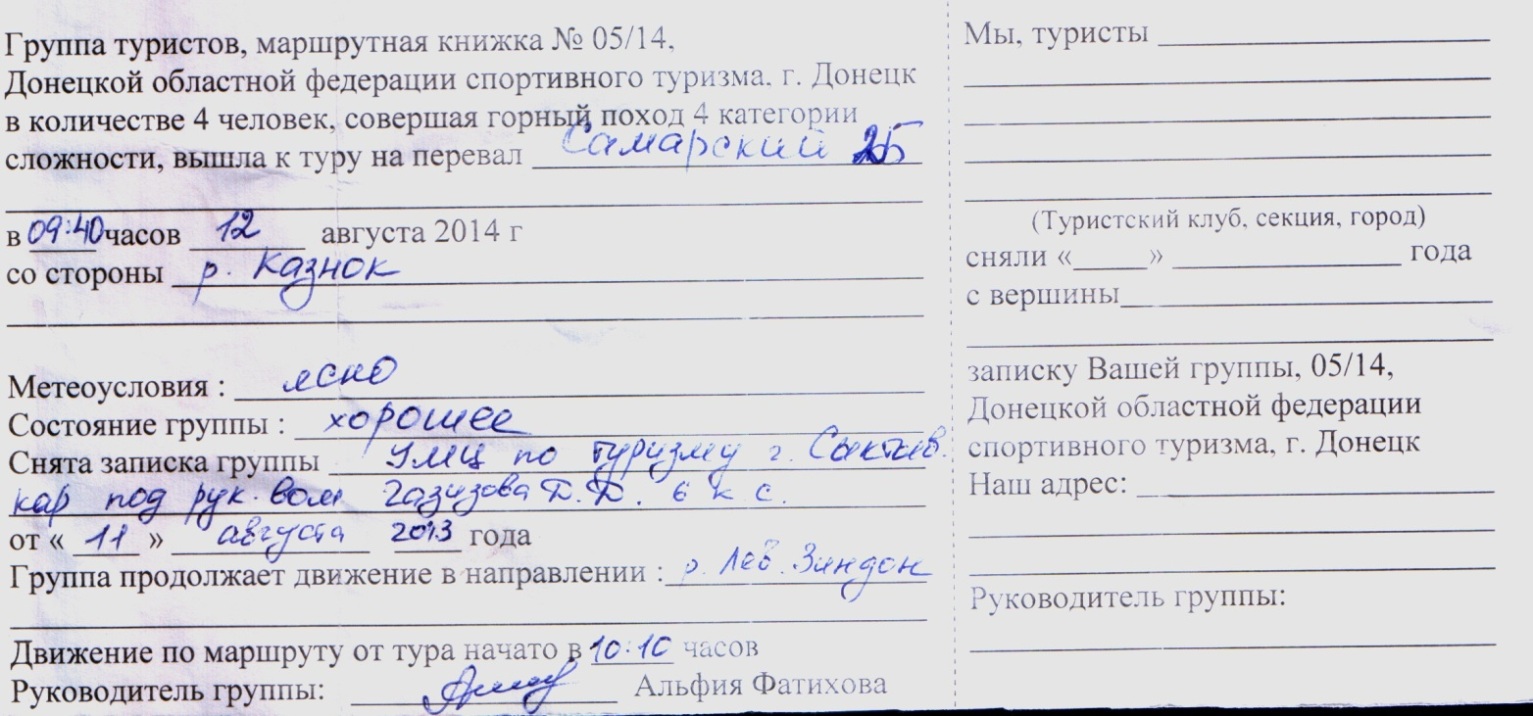 Группа туристов, маршрутная книжка № 05/14,
Донецкой областной федерации спортивного туризма. г. Донецк
в количестве 4 человек, совершая горный поход 4 категории
сложности, вышла к туру на перевал Самарский 2Б
в 09:40 часов 12 августа 2014 г
со стороны р. Казнок
Метеоусловия : ясно
Состояние группы : хорошее
Снята записка группы УМЦ по туризму г. Сыктыв.
кар под рук. вом Газизова Д.Д. 6 к. с.
от « 11 » августа 2013 года
Группа продолжает движение в направлении : р. Лев. Зиндон
Движение по маршруту от тура начато в 10:10 часов
Руководитель группы: Альфия Фатихова
Мы, туристы
(Туристский клуб, секция, город)
сняли «_____» года
с вершины
записку Вашей группы, 05/14,
Донецкой областной федерации
спортивного туризма, г. Донецк
Наш адрес:
Руководитель группы: